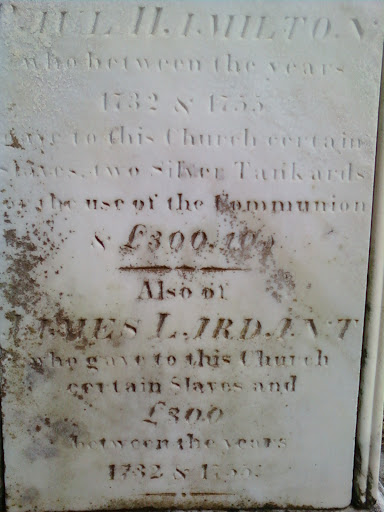 PAUL HAMILTON
who between the years
1732 & 1755
gave to this Church certain
slaves, two Silver Tankards
the use of the Communion
& £300.10s
Also of
JAMES LARDANT
who gave to this Church
certain Slaves and
£300
between the years
1732 & 1755.